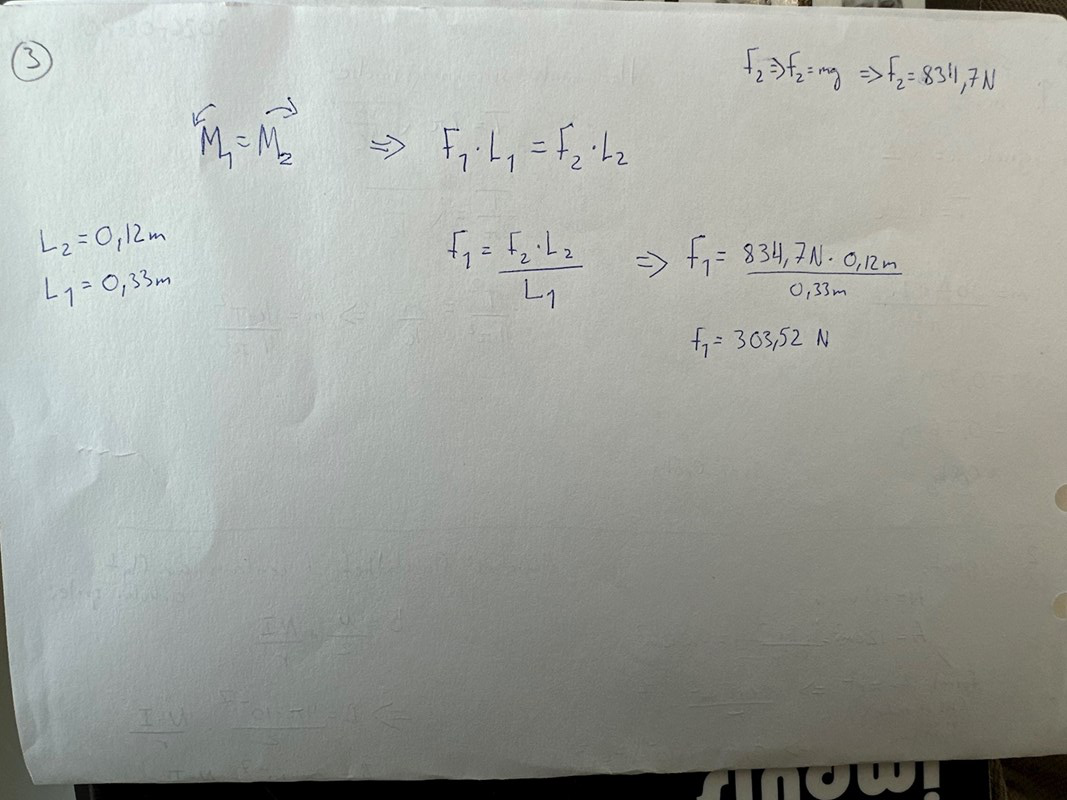 3
F₂ ⇒ F₂ = mg ⇒ F₂ = 834,7N
M₁ = M₂ ⇒ F₁ · L₁ = F₂ · L₂
L₂ = 0,12m
L₁ = 0,33m
F₁ = F₂ · L₂ / L₁ ⇒ F₁ = 834,7N · 0,12m / 0,33m
F₁ = 303,52 N
impuls